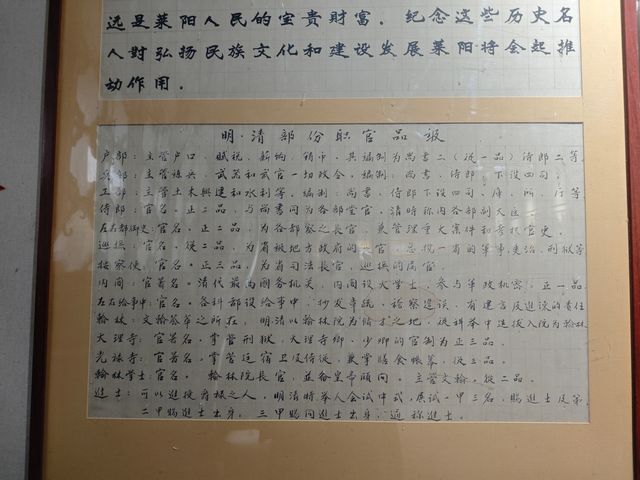 远是莱阳人民的宝贵财富。纪念这些历史名
人对弘扬民族文化和建设发展莱阳将会起推
动作用.
明·清部份职官品级
户部:主管户口、赋税、薪饷、销币、其编制为尚书二(从一品)侍郎二等
兵部:主管练兵、武器和武官一切政令.编制:尚书、侍郎、下设四司.
工部:主管土木興建和水利等.编制:尚书、侍郎下设四司、库、厅等
侍郎:官名。正二品,与尚书同为各部堂官、清時称内各部副大臣
左右都御史:官名。正二品,为各部察之长官、兼管理重大案件和考核官吏.
巡撫:官名。従二品,为省级地方政府的長官.总揽一省的军事.吏治.刑狱等
按察使:官名。正三品,为省司法長官.巡撫的属官.
内阁:官署名。清代最高国务机关、内阁设大学士、参与军政机密.正一品.
左右给事中:官名。各科部设给事中、抄发章疏、稽察違误、有建言及進谏的責任
翰林:文翰荟萃之所在,明清以翰林院为储才之地、従科举中选拔入院为翰林
大理寺:官署名。掌管刑狱、大理寺卿、少卿的官制为正三品.
光禄寺:官署名。掌管廷宿卫及侍從、兼掌膳食帐幕、従三品.
翰林学士:官名。翰林院長官,並备皇帝顾问。主管文翰.従二品.
進士:可以進授爵禄之人,明清時举人会试中式,殿试一甲三名.賜進士及第.
二甲賜進士出身,三甲賜同進士出身,通称進士.